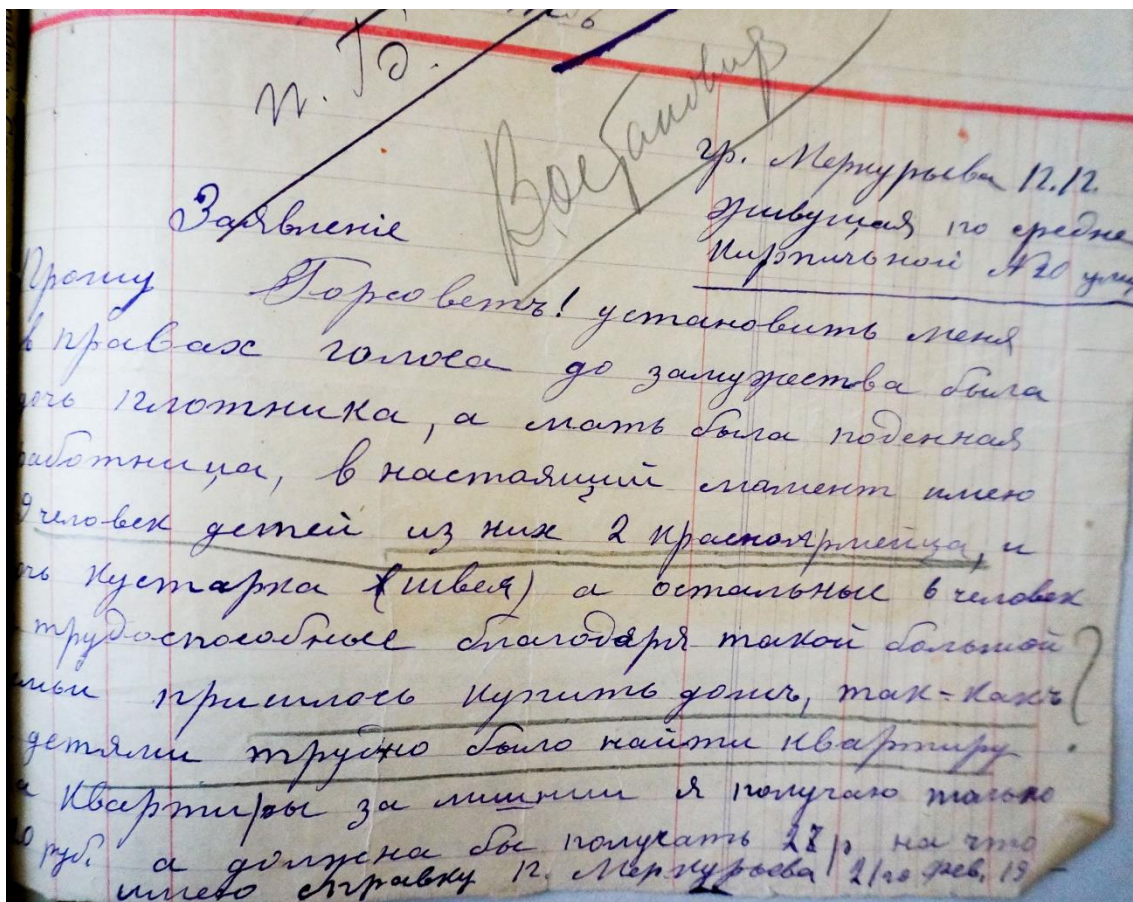 п. Гд.
Востановить
гр. Меркурьева П.П.
живущая по средне
Кирпичьной №20 улиц
Заявленіе
Прошу Горсоветъ! установить меня
в правах голоса до замужества была
дочь плотника, а мать была поденная
работница, в настоящий мамент имею
9 человек детей из них 2 красноярмейца, и
чь кустарка (швея) а остальные 6 человек
трудоспособные благодаря такой большой
мьи пришлось купить домъ, так-какъ
детями трудно было найти квартиру
квартиры за лишнии я получаю только
0 руб. а должна бы получать 28 р на что
имею справку П. Меркурьева 21го фев. 19